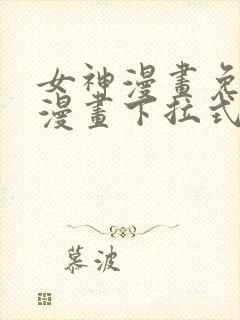 女神漫畫免
漫畫下拉式
慕波